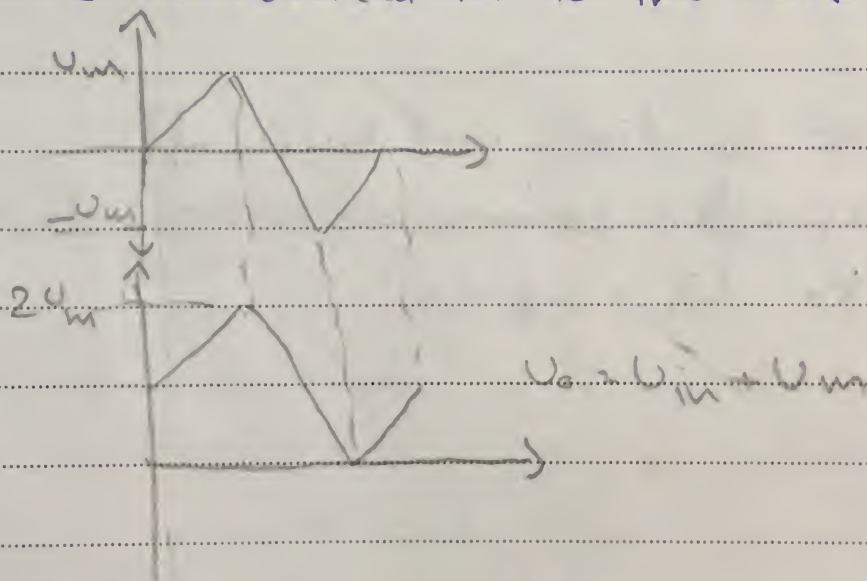 Vm
-Vm
2Vm
Vo = Vin + Vm